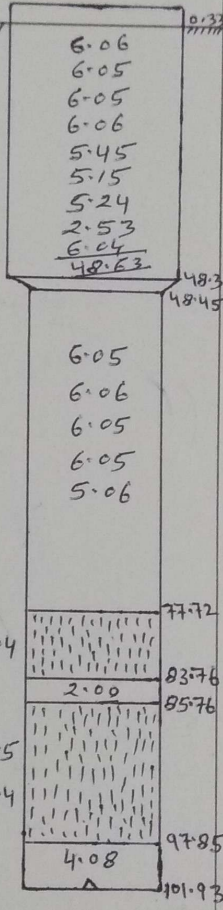 0.32
6.06
6.05
6.05
6.06
5.45
5.15
5.24
2.53
6.04
48.63
48.3
48.45
6.05
6.06
6.05
6.05
5.06
77.72
4
83.76
2.00
85.76
5
4
97.85
4.08
101.93